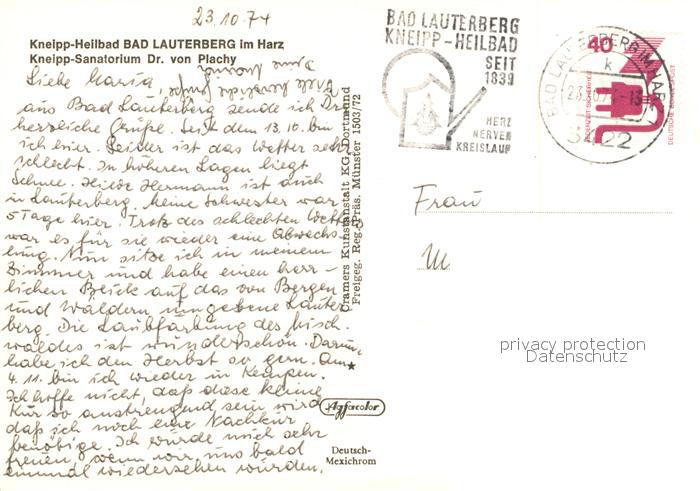 23.10.74
Kneipp-Heilbad BAD LAUTERBERG im Harz
Kneipp-Sanatorium Dr. von Plachy
Liebe Maria,
aus Bad Lauterberg sende ich Dir
herzliche Grüße. Seit dem 13.10. bin
ich hier. Leider ist das Wetter sehr
schlecht. In höheren Lagen liegt
Schnee. Hilde Hermann ist auch
in Lauterberg. Meine Schwester war
5 Tage hier. Trotz des schlechten Wetters
war es für sie wieder eine Abwechs-
lung. Nun sitze ich in meinem
Zimmer und habe einen herr-
lichen Blick auf das von Bergen
und Wäldern umgebene Lauter-
berg. Die Laubfärbung des Misch-
waldes ist wunderschön. Darum
habe ich den Herbst so gern. Am
4.11. bin ich wieder in Kempen.
Ich hoffe nicht, daß diese kleine
Kur so anstrengend sein wird
daß ich noch eine Nachkur
benötige. Ich würde mich sehr
freuen, wenn wir uns bald
einmal wiedersehen würden.
Cramers Kunstanstalt KG, Dortmund
Freigeg. Reg. Präs. Münster 1503/72
Agfacolor
Deutsch-
Mexichrom
BAD LAUTERBERG
KNEIPP-HEILBAD
SEIT
1839
HERZ
NERVEN
KREISLAUF
BAD LAUTERBERG IM HARZ
k
40
DEUTSCHE BUNDESPOST
Frau
M
privacy protection
Datenschutz